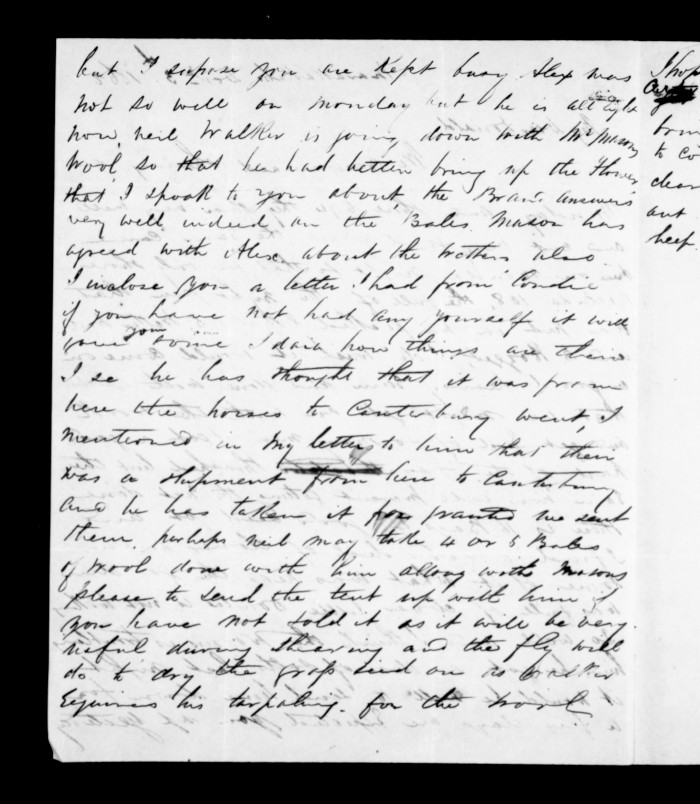 but I supose you are Kept busy Alex was
not so well on monday but he is all right
now, neil Walker is going down with Mr Masons
Wool, so that he had better bring up the Flower
that I spoak to you about, the Brand answers
very well indeed on the Bales. Mason has
agreed with Alex about the wethers also
I inclose you a letter I had from Condie
if you have not had any yourself it will
give you some I daia how things are their
I se he has thought that it was from
here the horses to Canterbury went, I
mentioned in my letter to him that their
was a shipment from here to Canterbury
and he has taken it for granted we sent
them. perhaps neil may take 4 or 5 Bales
of wool down with him allong with Masons
please to send the tent up with him if
you have not sold it as it will be very
useful during Shearing and the fly will
do to dry the grass seed on as Walker
Equires his tarpaling. for the wool
I hop
bring
to Co
clean
out
keep.